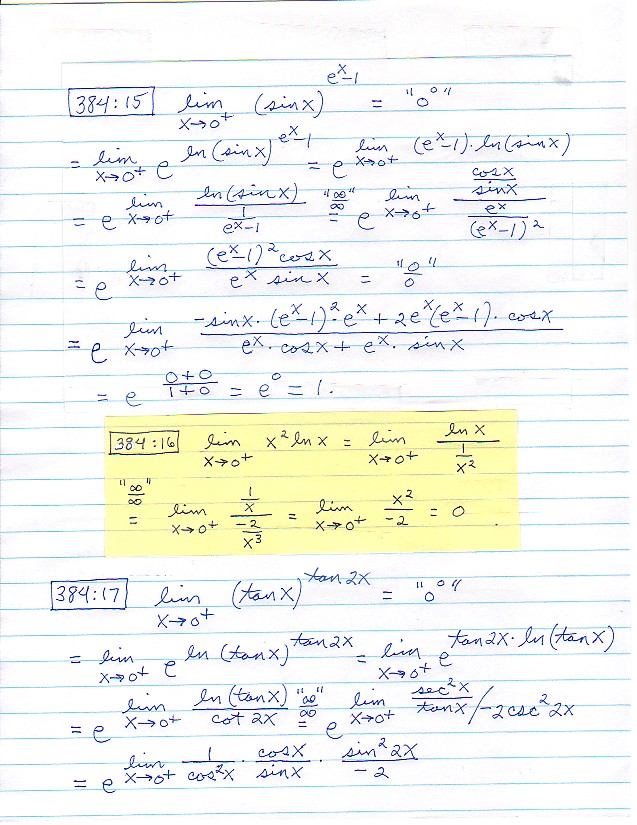 384:15 lim x→0⁺ (sin x)^(eˣ-1) = "0⁰"
= lim x→0⁺ e^(ln (sin x)^(eˣ-1)) = e^(lim x→0⁺ (eˣ-1)·ln(sin x))
= e^(lim x→0⁺ ln(sin x) / (1/(eˣ-1))) "∞/∞" = e^(lim x→0⁺ (cos x / sin x) / (eˣ/(eˣ-1)²))
= e^(lim x→0⁺ (eˣ-1)² cos x / (eˣ sin x)) = "0/0"
= e^(lim x→0⁺ (-sin x·(eˣ-1)²·eˣ + 2eˣ(eˣ-1)·cos x) / (eˣ·cos x + eˣ·sin x))
= e^((0+0)/(1+0)) = e⁰ = 1.
384:16 lim x→0⁺ x² ln x = lim x→0⁺ ln x / (1/x²)
"∞/∞" = lim x→0⁺ (1/x) / (-2/x³) = lim x→0⁺ x²/-2 = 0 .
384:17 lim x→0⁺ (tan x)^(tan 2x) = "0⁰"
= lim x→0⁺ e^(ln (tan x)^(tan 2x)) = lim x→0⁺ e^(tan 2x·ln(tan x))
= e^(lim x→0⁺ ln(tan x) / cot 2x) "∞/∞" = e^(lim x→0⁺ (sec² x / tan x) / -2csc² 2x)
= e^(lim x→0⁺ 1/cos² x · cos x / sin x · sin² 2x / -2)